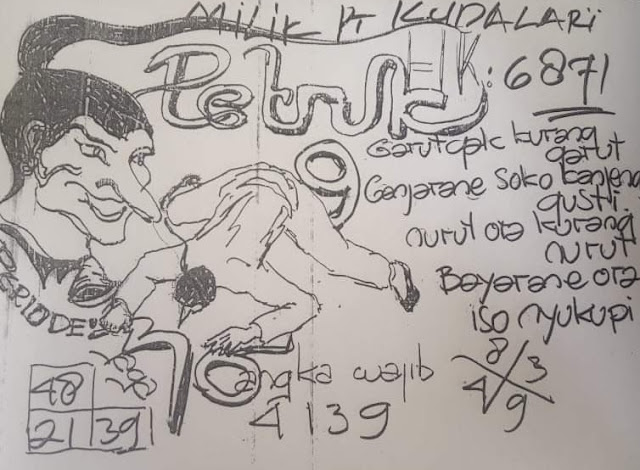 MILIK PT KUDALARI
Petruk
HK: 6871
9
kurang
garut
Ganjarane soko kanjeng
gusti
nurut ora kurang
nurut
Bayarane ora
iso nyukupi
PERIODE
angka wajib
4139
48
21 39
8
4 3
9